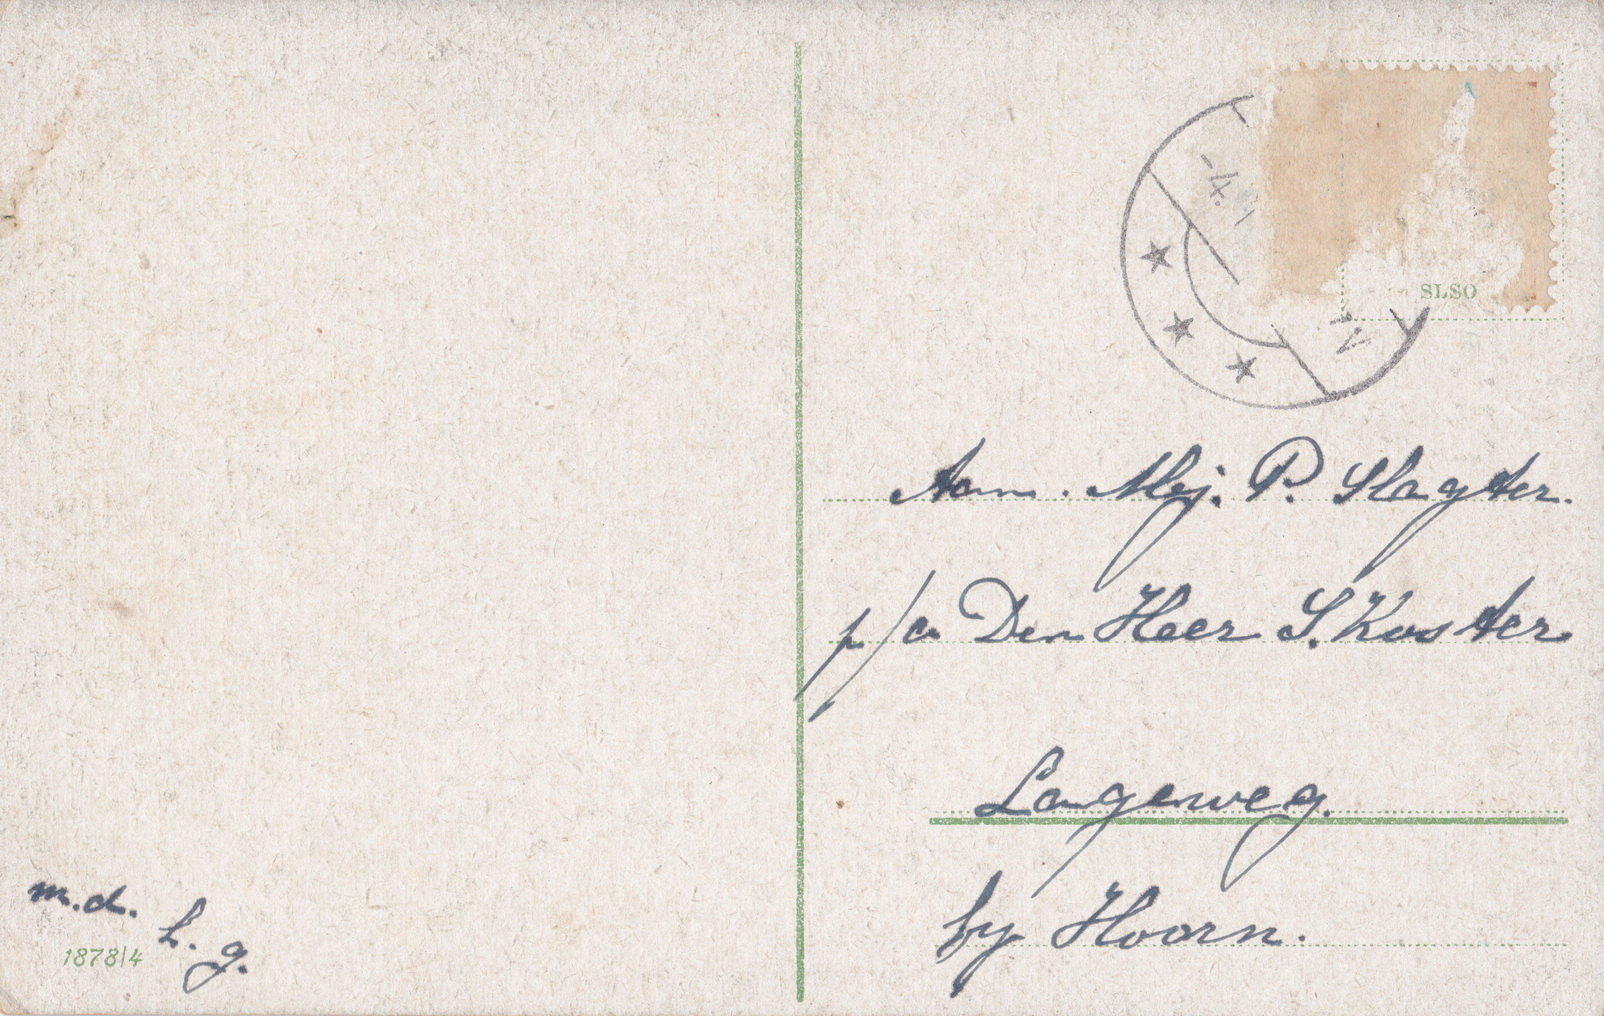 -4.
SLSO
Aan. Mej. P. Slagter.
p/a Den Heer S. Koster
Langeweg.
by Hoorn.
m.d.
h. g.
1878/4